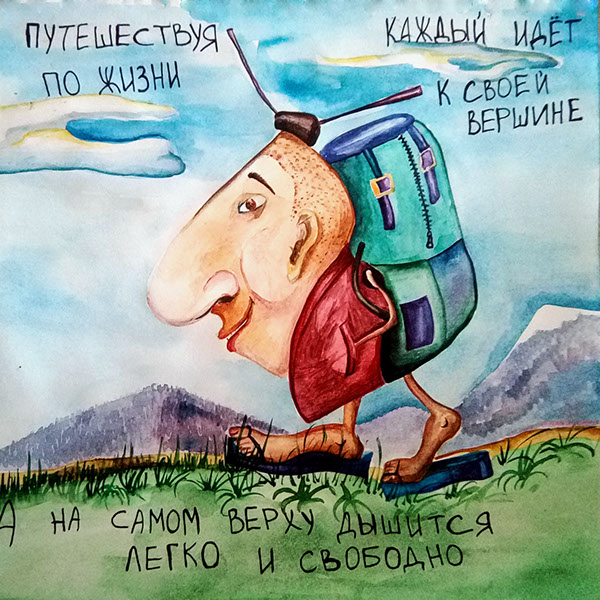 ПУТЕШЕСТВУЯ
ПО ЖИЗНИ
КАЖДЫЙ ИДЁТ
К СВОЕЙ
ВЕРШИНЕ
А НА САМОМ ВЕРХУ ДЫШИТСЯ
ЛЕГКО И СВОБОДНО